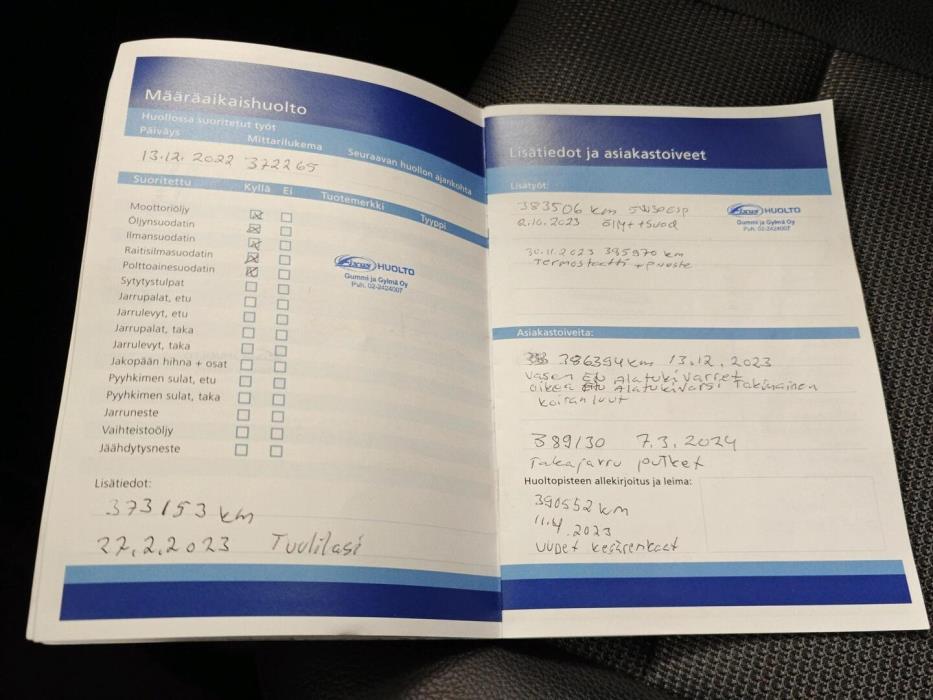 Määräaikaishuolto
Huollossa suoritetut työt
Päiväys Mittarilukema Seuraavan huollon ajankohta
13.12.2022 372265
Suoritettu Kyllä Ei Tuotemerkki Tyyppi
Moottoriöljy
Öljynsuodatin
Ilmansuodatin
Raitisilmasuodatin
Polttoainesuodatin
Sytytystulpat
Jarrupalat, etu
Jarrulevyt, etu
Jarrupalat, taka
Jarrulevyt, taka
Jakopään hihna + osat
Pyyhkimen sulat, etu
Pyyhkimen sulat, taka
Jarruneste
Vaihteistoöljy
Jäähdytysneste
Fixus HUOLTO
Gummi ja Gylmä Oy
Puh. 02-2424007
Lisätiedot:
373153 km
27.2.2023 Tuulilasi
Lisätiedot ja asiakastoiveet
Lisätyöt:
383506 km 5W30ESP
2.10.2023 Öljy + Suod
Fixus HUOLTO
Gummi ja Gylmä Oy
Puh. 02-2424007
30.11.2023 385970 km
Termostaatti +
Asiakastoiveita:
386394 km 13.12.2023
Vasen Etu Alatukivarret
oikea Etu Alatukivarsi Takimainen
koiranluut
389130 7.3.2024
Takajarru putket
Huoltopisteen allekirjoitus ja leima:
390552 km
11.4.2023
uudet kesärenkaat